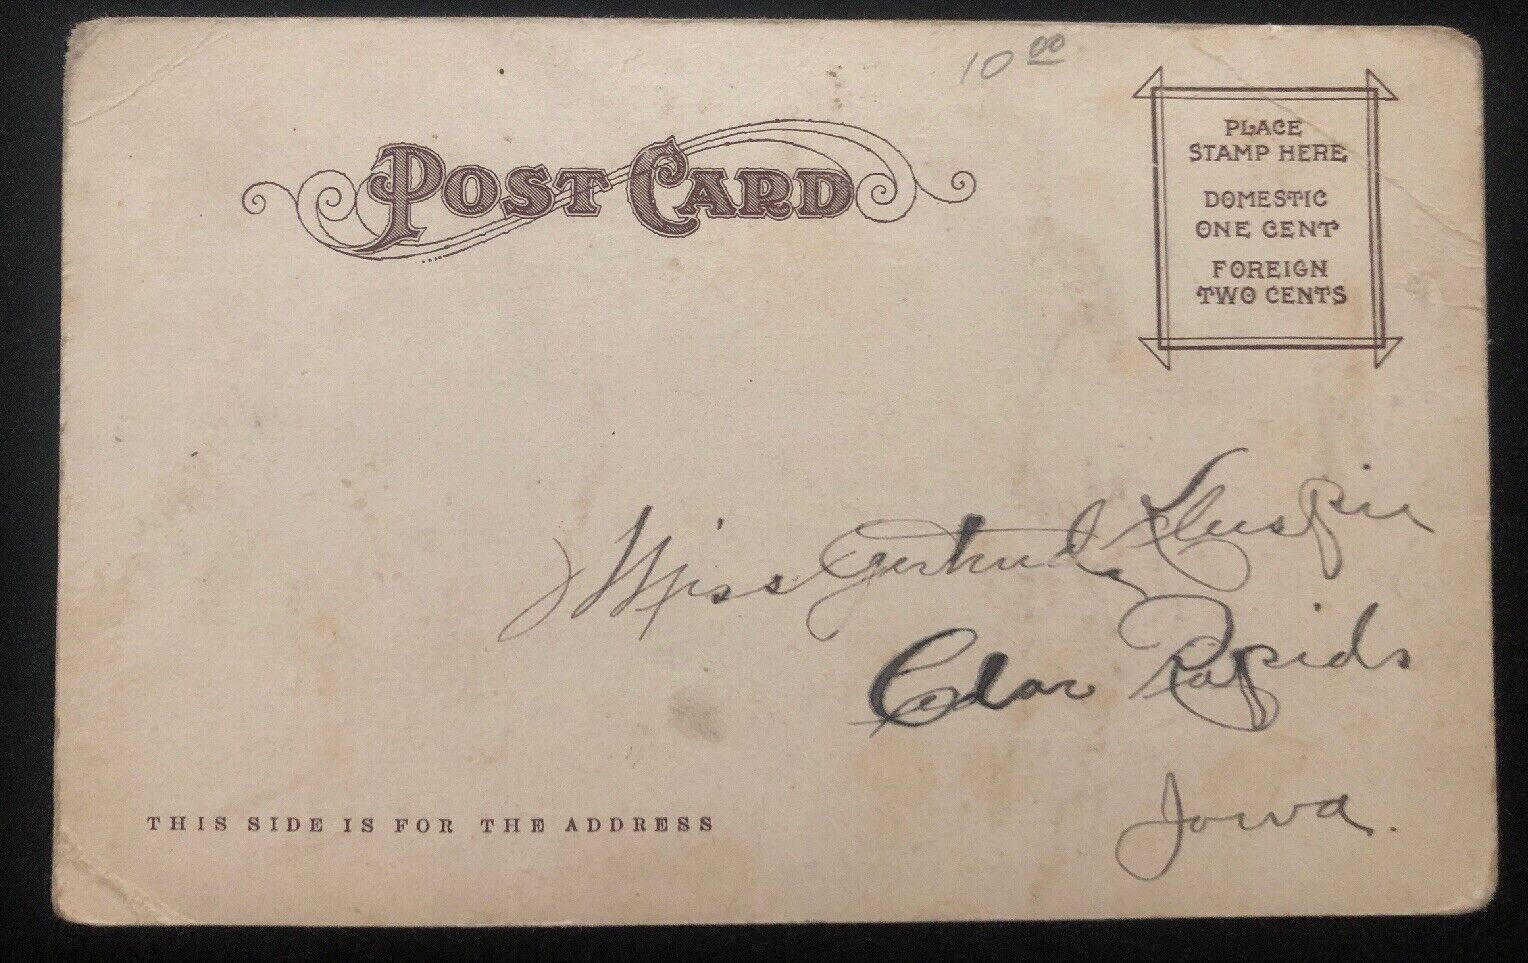 10 00
POST CARD
PLACE
STAMP HERE
DOMESTIC
ONE CENT
FOREIGN
TWO CENTS
Miss Gertrude
Cedar Rapids
Iowa.
THIS SIDE IS FOR THE ADDRESS